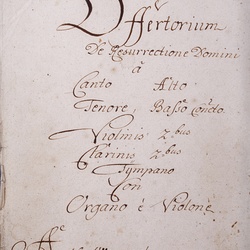 Offertorium
De Resurrectione Domini
â
Canto Alto
Tenore, Basso Conc:to
Violinis 2.bus
Clarinis 2.bus
Tympano
Con
Organo è Violone